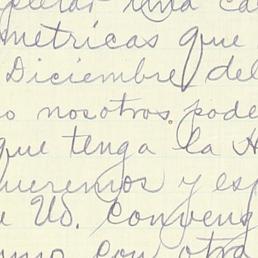 pletar una ca
metricas que
Diciembre del
o nosotros pode
que tenga la H
queremos y esp
e Ud. conveng
como con otra